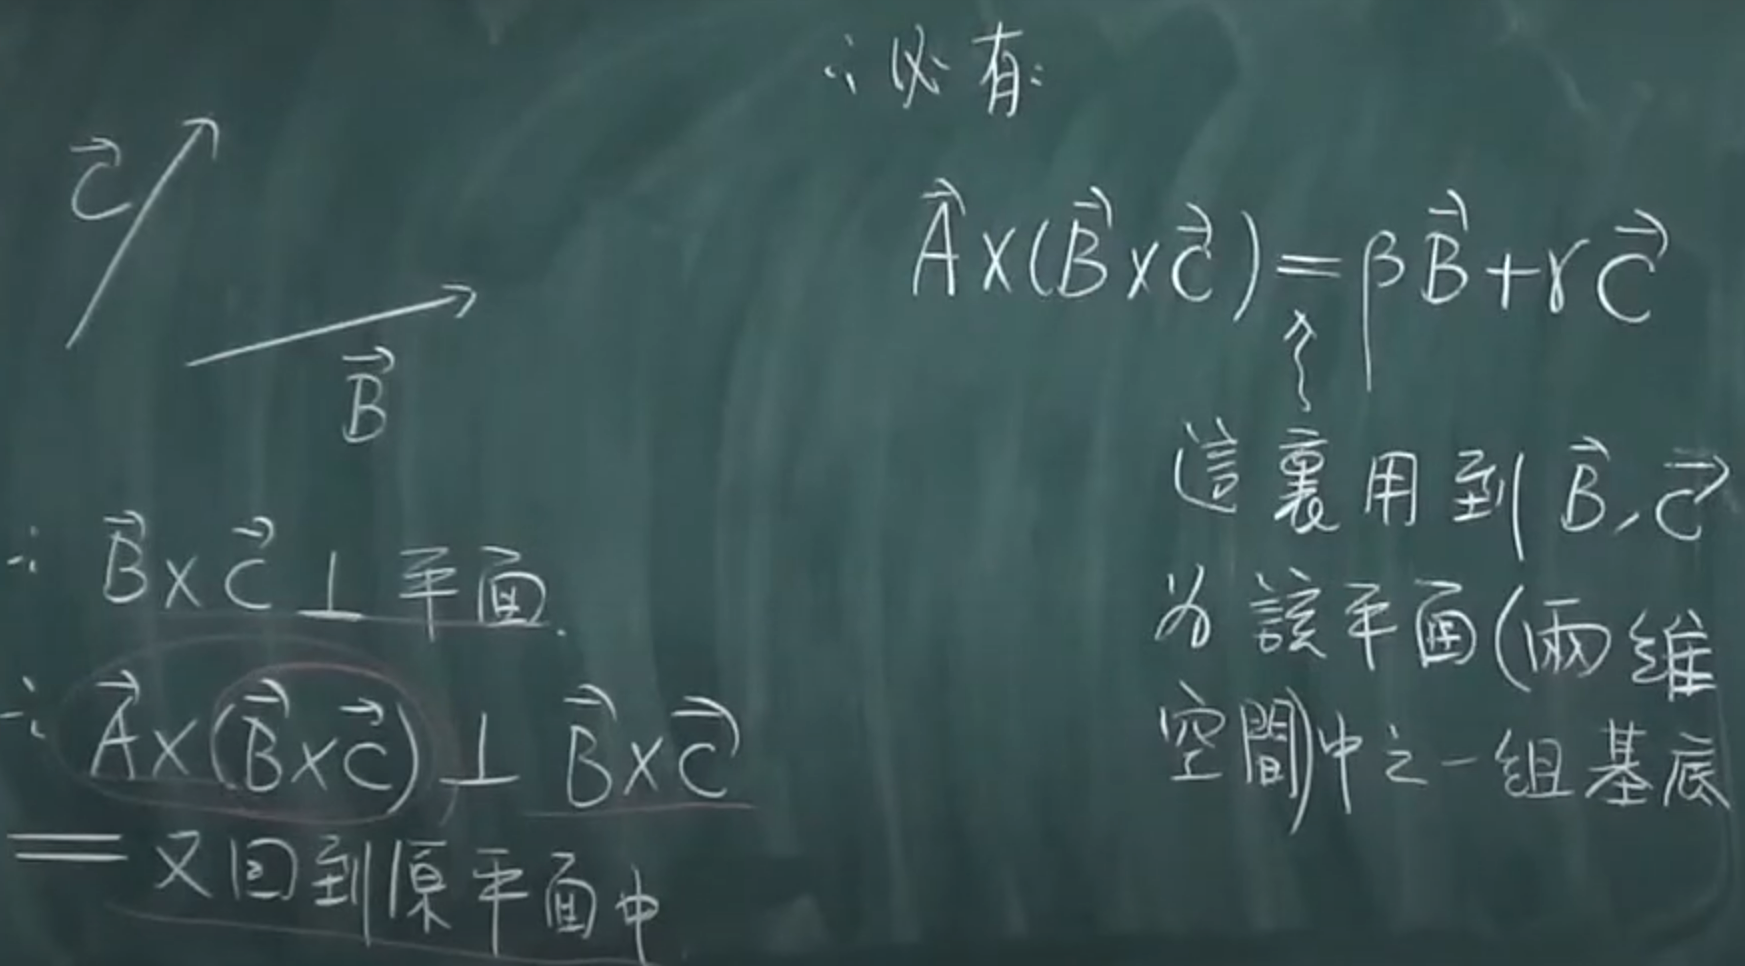 C⃗
B⃗
∵ B⃗×C⃗ ⊥ 平面.
∴ A⃗×(B⃗×C⃗) ⊥ B⃗×C⃗
= 又回到原平面中
∴必有:
A⃗×(B⃗×C⃗)=βB⃗+γC⃗
這裏用到B⃗,C⃗
为該平面(兩維
空間)中之一組基底